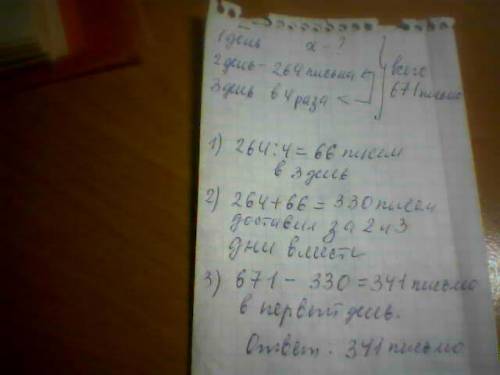 1 день х - ?
2 день - 264 письма
3 день в 4 раза <
всего
671 письмо
1) 264 : 4 = 66 писем
в 3 день
2) 264 + 66 = 330 писем
доставил за 2 и 3
дни вместе
3) 671 - 330 = 341 письмо
в первый день.
Ответ. 341 письмо